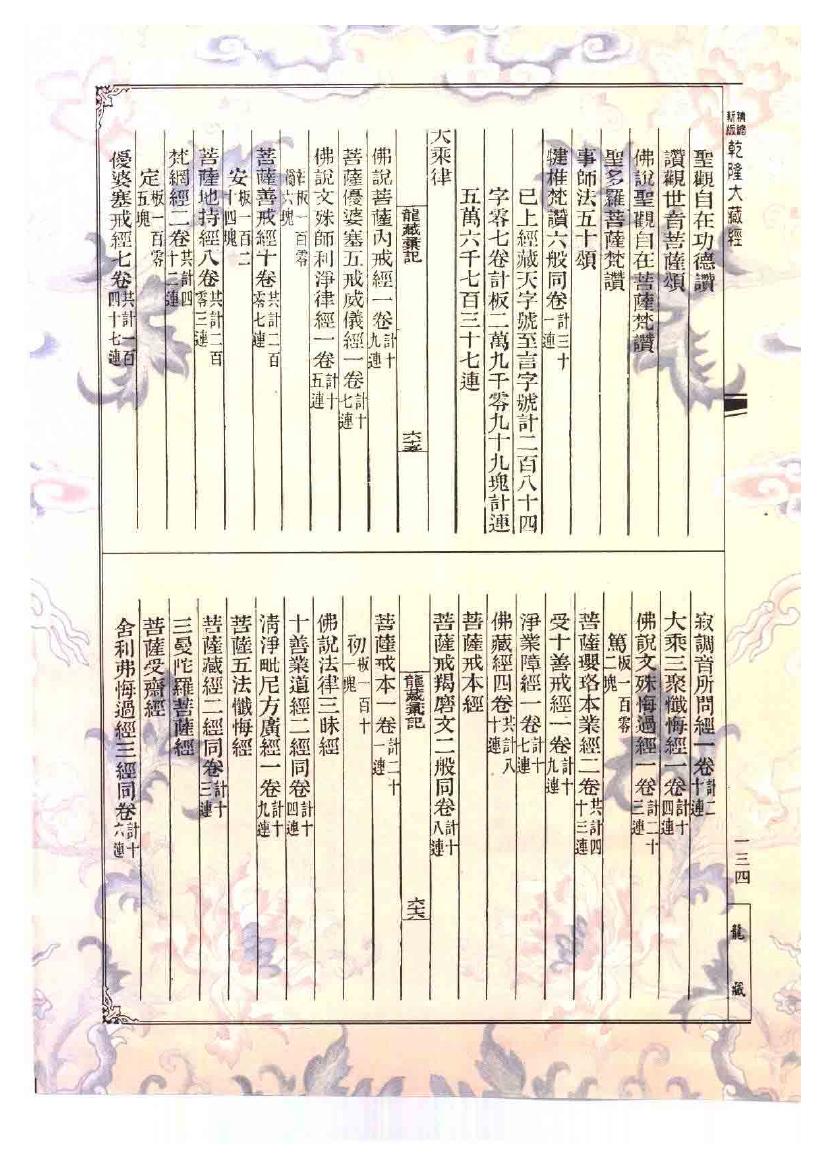 精縮新版
乾隆大藏經
聖觀自在功德讚
讚觀世音菩薩頌
佛說聖觀自在菩薩梵讚
聖多羅菩薩梵讚
事師法五十頌
犍椎梵讚六般同卷計三十一連
已上經藏天字號至言字號計二百八十四
字零七卷計板二萬九千零九十九塊計連
五萬六千七百三十七連
大乘律
龍藏彙記
六十五
佛說菩薩內戒經一卷計十九連
菩薩優婆塞五戒威儀經一卷計十七連
佛說文殊師利淨律經一卷計十五連
板一百零六塊
菩薩善戒經十卷共計二百零七連
安板一百二十四塊
菩薩地持經八卷共計二百零三連
梵網經二卷共計四十二連
定板一百零五塊
優婆塞戒經七卷共計一百四十七連
寂調音所問經一卷計二十連
大乘三聚懺悔經一卷計十四連
佛說文殊悔過經一卷計二十三連
篤板一百零二塊
菩薩瓔珞本業經二卷共計四十三連
受十善戒經一卷計十九連
淨業障經一卷計十七連
佛藏經四卷共計八十連
菩薩戒本經
菩薩戒羯磨文二般同卷計十八連
龍藏彙記
六十六
菩薩戒本一卷計二十連
初板一百十一塊
佛說法律三昧經
十善業道經二經同卷計十四連
清淨毗尼方廣經一卷計十九連
菩薩五法懺悔經
菩薩藏經二經同卷計十三連
三曼陀羅菩薩經
菩薩受齋經
舍利弗悔過經三經同卷計十六連
一三四
龍藏